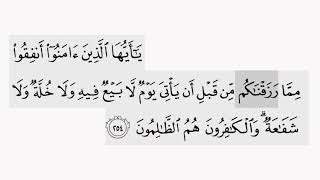 يَـٰٓأَيُّهَا ٱلَّذِينَ ءَامَنُوٓا۟ أَنفِقُوا۟
مِمَّا رَزَقْنَـٰكُم مِّن قَبْلِ أَن يَأْتِىَ يَوْمٌ لَّا بَيْعٌ فِيهِ وَلَا خُلَّةٌ وَلَا
شَفَـٰعَةٌ ۗ وَٱلْكَـٰفِرُونَ هُمُ ٱلظَّـٰلِمُونَ ٢٥٤